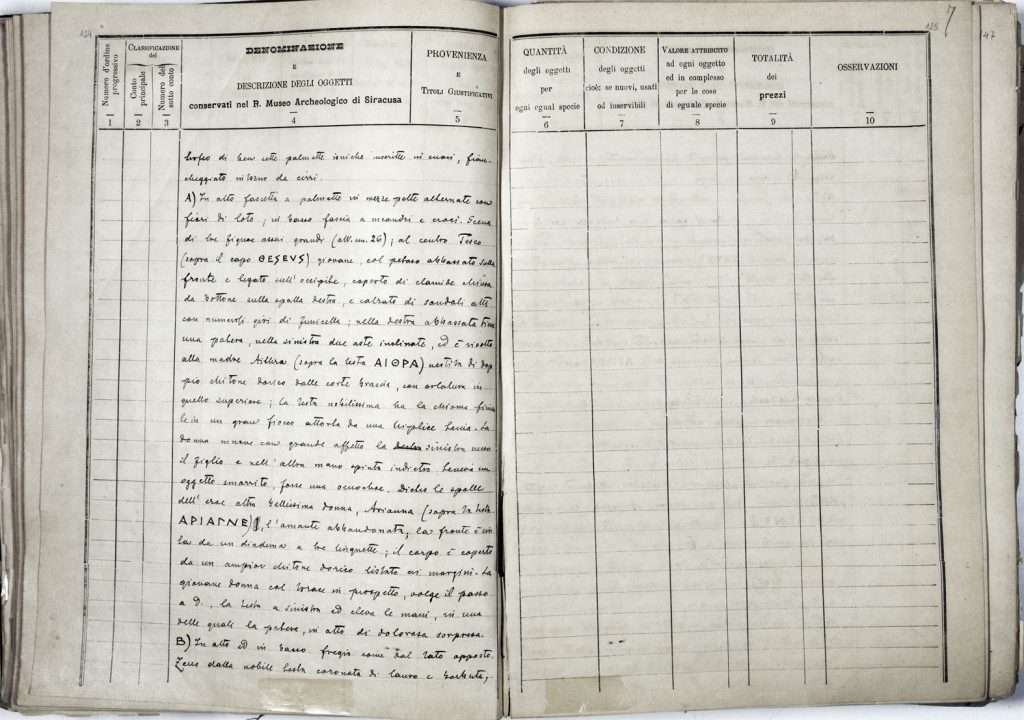 124
Numero d'ordine progressivo
CLASSIFICAZIONE
del
Conto principale
Numero del sotto conto
DENOMINAZIONE
E
DESCRIZIONE DEGLI OGGETTI
conservati nel R. Museo Archeologico di Siracusa
PROVENIENZA
E
TITOLI GIUSTIFICATIVI
1 2 3 4 5
di ben sette palmette ioniche inscritte in cuori, fian-
cheggiato intorno da cirri.
A) In alto fascetta a palmette in mezzo alternate con
fiori di loto; in basso fascia a meandri e croci. Scena
di tre figure assai grandi (alt. cm. 26); al centro Teseo
(sopra il capo ΘΕSEVS) giovane, col petaso abbassato sulla
fronte e legato sull'occipite, coperto di clamide chiusa
da bottone sulla spalla destra, e calzato di sandali alti
con numerosi giri di funicella; nella destra abbassata tiene
una patera, nella sinistra due aste inclinate, ed è rivolto
alla madre Aithra (sopra la testa ΑΙΘΡΑ) vestita di dop
pio chitone dorico dalle corte braccia, con orlatura in
quello superiore; la testa nobilissima ha la chioma
in un gran fiocco attorta da una triplice tenia. La
donna muove con grande affetto la destra sinistra verso
il figlio e nell'altra mano spinta indietro teneva un
oggetto smarrito, forse una oenochoe. Dietro le spalle
dell'eroe altra bellissima donna, Arianna (sopra la testa
ΑΡΙΑΓΝΕ), l'amante abbandonata; la fronte è cin
ta da un diadema a tre linguette; il corpo è coperto
da un ampio chitone dorico listato ai margini. La
giovane donna col torace in prospetto, volge il passo
a D., la testa a sinistra ed eleva le mani, in una
delle quali la patera, in atto di dolorosa sorpresa.
B) In alto ed in basso fregio come dal lato opposto.
Zeus dalla nobile testa coronata di lauro e barbuta,
125
7
147
QUANTITÀ
degli oggetti
per
ogni egual specie
CONDIZIONE
degli oggetti
cioè: se nuovi, usati
od inservibili
VALORE ATTRIBUITO
ad ogni oggetto
ed in complesso
per le cose
di eguale specie
TOTALITÀ
dei
prezzi
OSSERVAZIONI
6 7 8 9 10